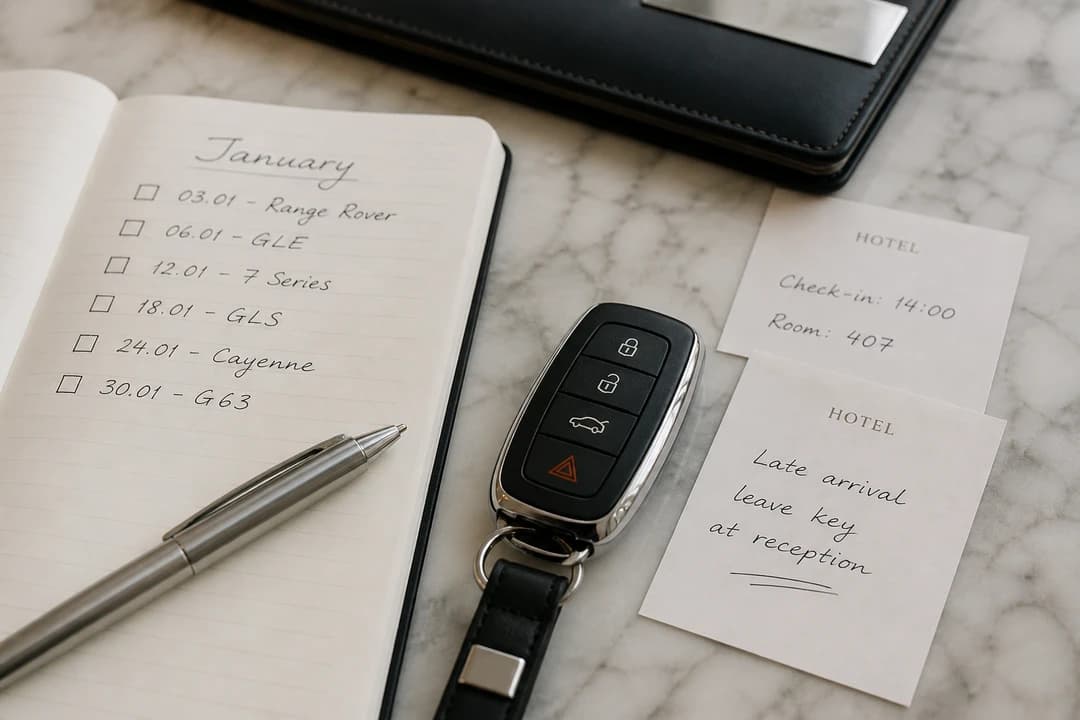 January
03.01 - Range Rover
06.01 - GLE
12.01 - 7 Series
18.01 - GLS
24.01 - Cayenne
30.01 - G63
HOTEL
Check-in: 14:00
Room: 407
HOTEL
Late arrival
leave key
at reception